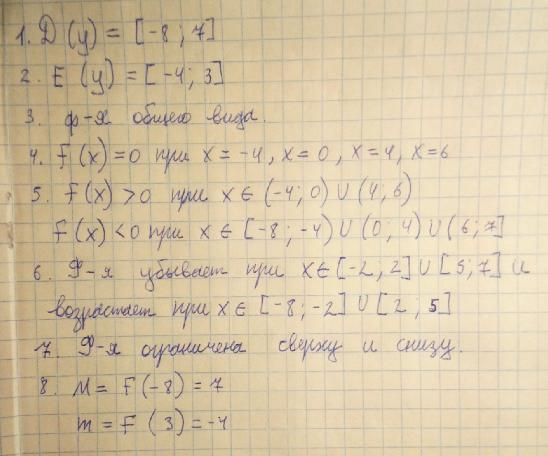 1. D (y) = [-8 ; 7]
2. E (y) = [-4; 3]
3. ф-я общего вида.
4. F (x) = 0 при x = -4, x = 0, x = 4, x = 6
5. F(x) > 0 при x ∈ (-4; 0) U (4; 6)
F(x) < 0 при x ∈ [-8; -4) U (0; 4) U (6; 7]
6. Ф-я убывает при x ∈ [-2, 2] U [5; 7] и
возрастает при x ∈ [-8; -2] U [2; 5]
7. Ф-я ограничена сверху и снизу.
8. M = F(-8) = 7
m = F (3) = -4